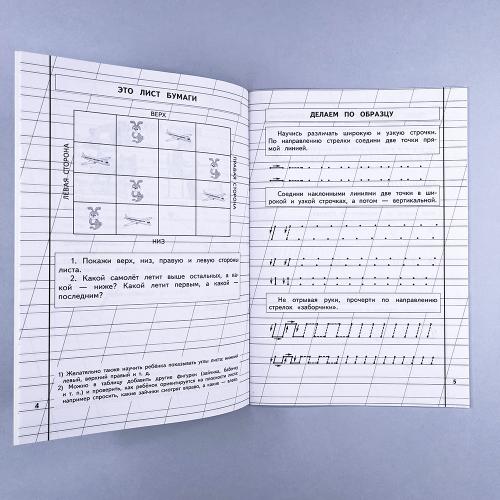 ЭТО ЛИСТ БУМАГИ
ВЕРХ
ЛЕВАЯ СТОРОНА
ПРАВАЯ СТОРОНА
НИЗ
1. Покажи верх, низ, правую и левую стороны
листа.
2. Какой самолёт летит выше остальных, а ка-
кой — ниже? Какой летит первым, а какой —
последним?
1) Желательно также научить ребёнка показывать углы листа: нижний
левый, верхний правый и т. д.
2) Можно в таблицу добавить другие фигурки (зайчика, бабочку
и т. п.) и проверить, как ребёнок ориентируется на плоскости листа;
например спросить, какие зайчики смотрят вправо, а какие — влево.
4
ДЕЛАЕМ ПО ОБРАЗЦУ
Научись различать широкую и узкую строчки.
По направлению стрелки соедини две точки пря-
мой линией.
Соедини наклонными линиями две точки в ши-
рокой и узкой строчках, а потом — вертикальной.
Не отрывая руки, прочерти по направлению
стрелок «заборчики».
5